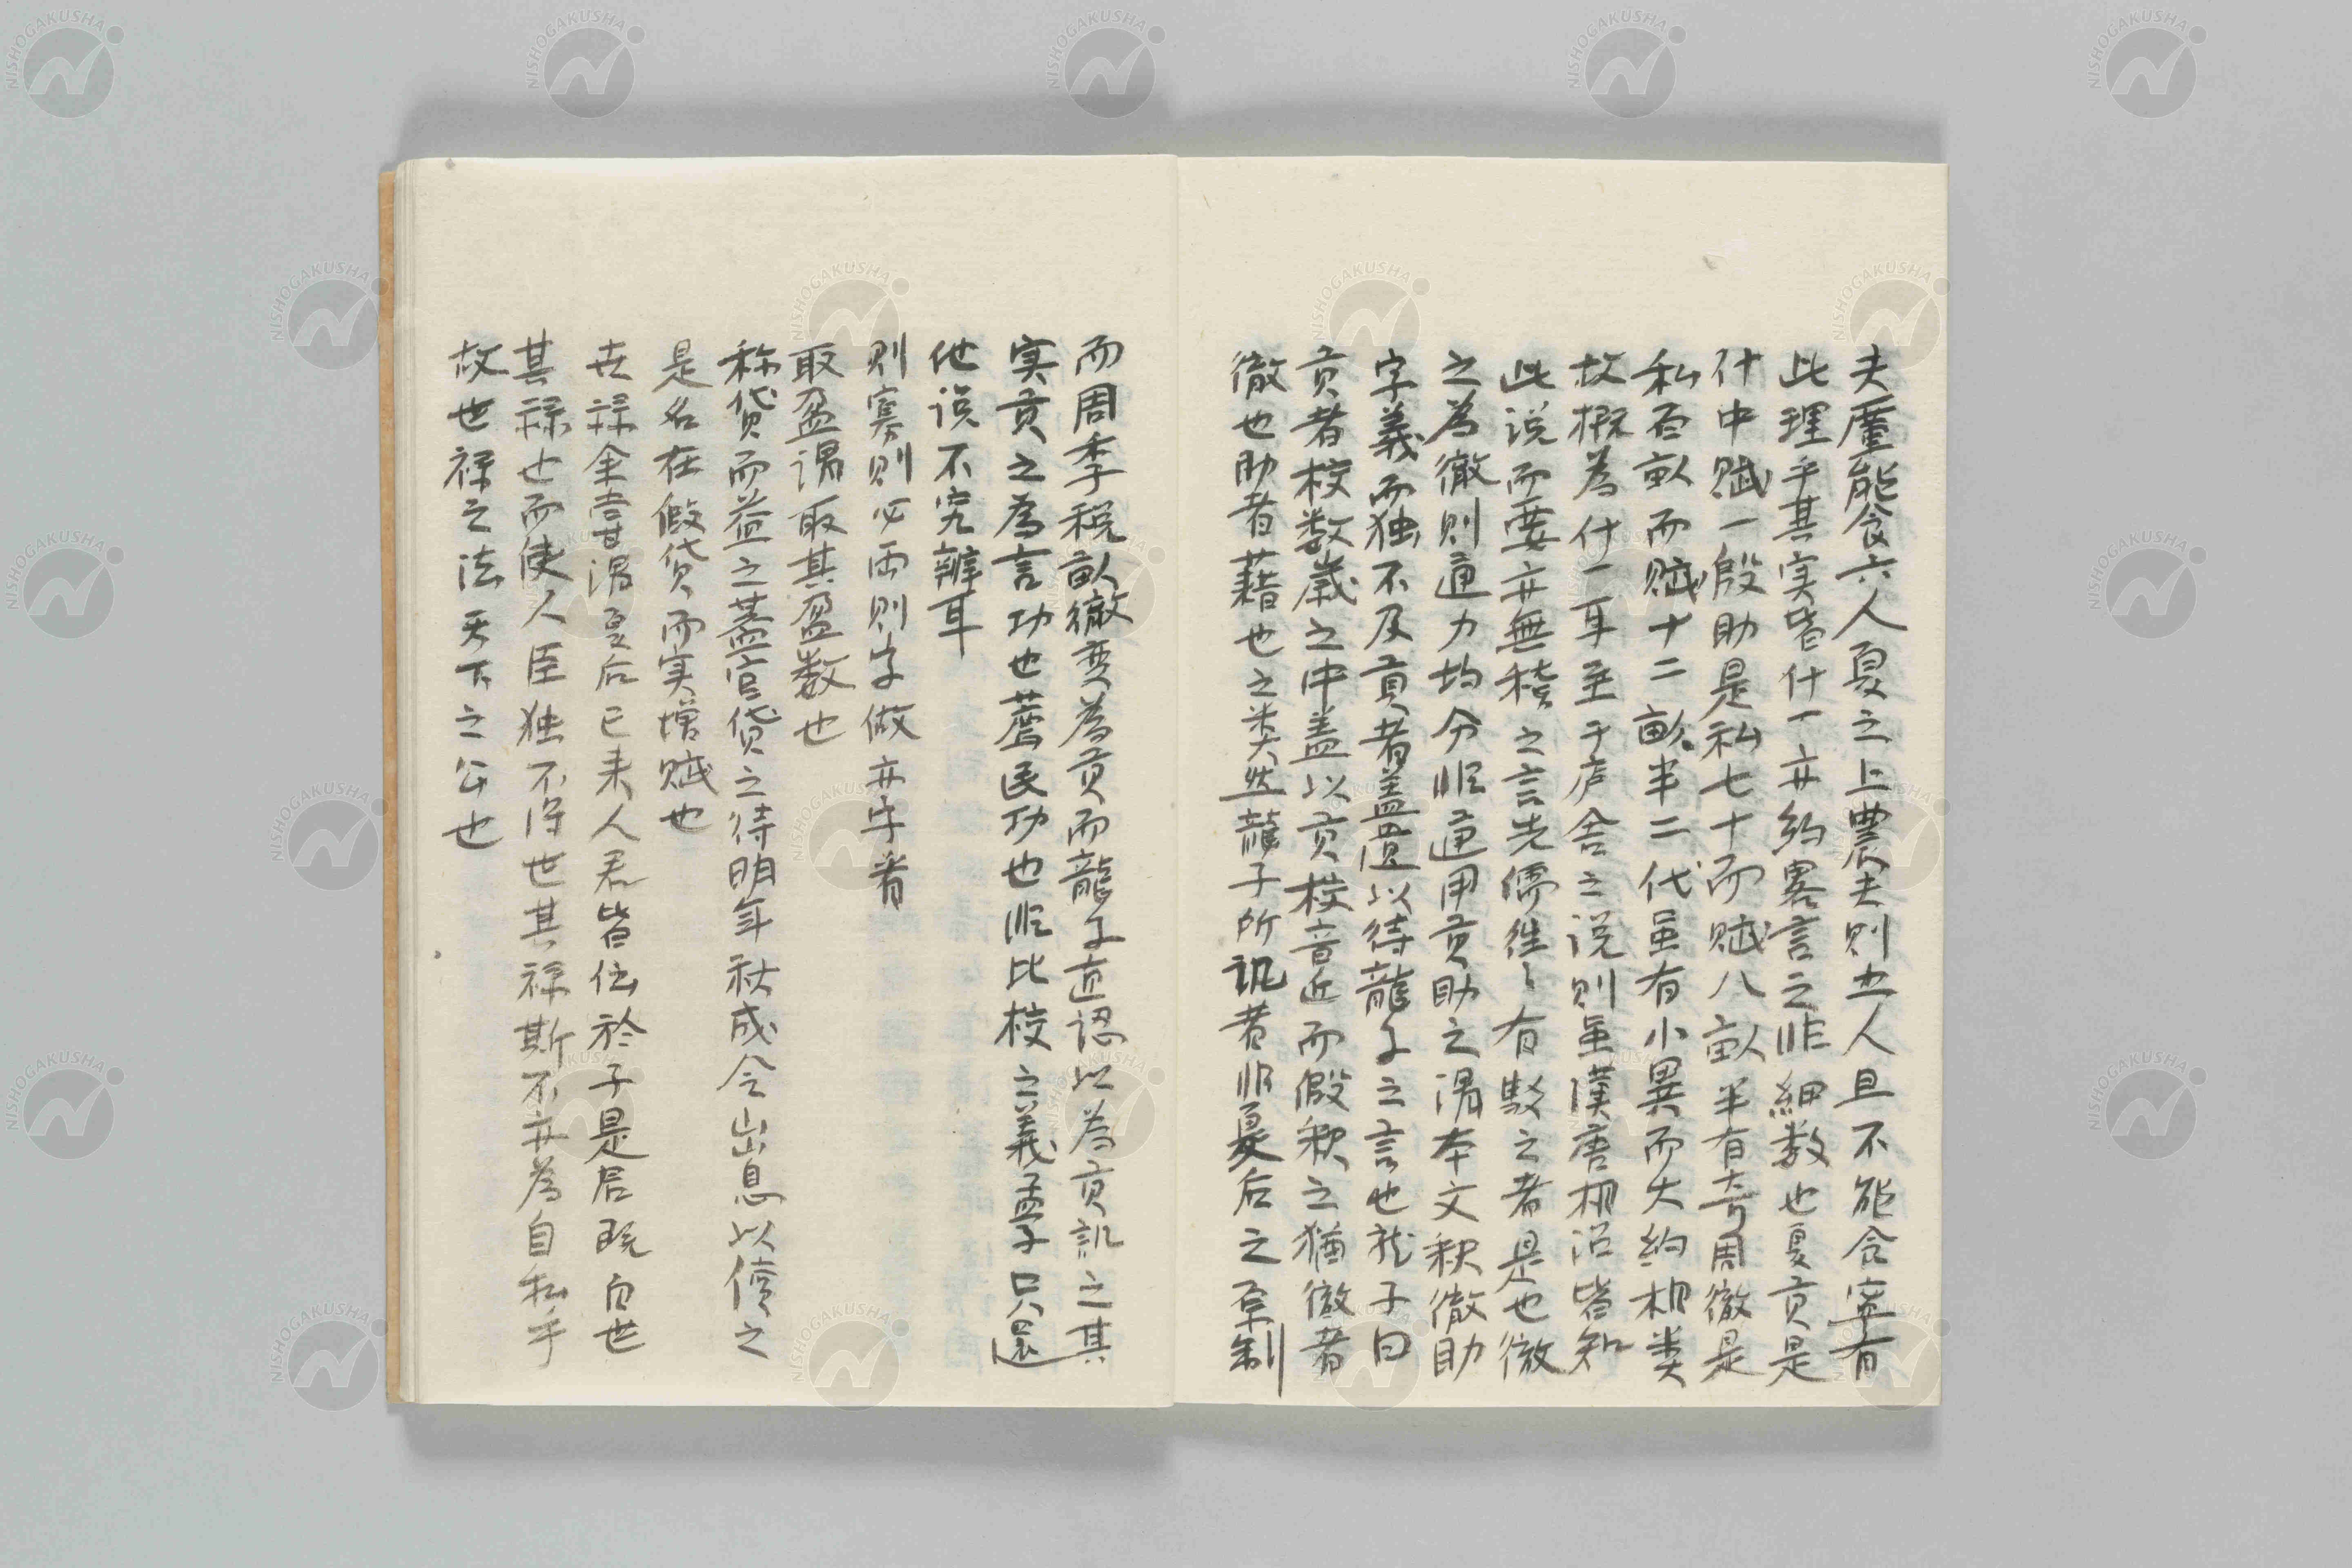 夫廑能食六人夏之上農夫則五人且不能食寧有
此理乎其実皆什一亦約畧言之非細数也夏貢是
什中賦一殷助是私七十而賦八畝半有奇周徹是
私百畝而賦十二畝半二代虽有小異而大約相类
故概為什一耳至于庐舎之说則虽漢唐相沿皆知
此说而要亦無稽之言先儒徃〻有駁之者是也徹
之為徹則通力均分非通用貢助之謂本文釈徹助
字義而独不及貢者盖置以待龍子之言也龍子曰
貢者校数歳之中盖以貢校音近而假釈之猶徹者
徹也助者藉也之类然龍子所讥者非夏后之原制
而周季税畝徹變為貢而龍子直認以為貢訊之其
実貢之為言功也薦民功也非比校之義孟子只還
他说不究辨耳
則寡則必而則字做亦字看
取盈謂取其盈数也
称貸而益之蓋官貸之待明年秋成令出息以償之
是名在假貸而実増賦也
世禄金吉甫謂夏后已来人君皆伝於子是君既自世
其禄也而使人臣独不得世其禄斯不亦為自私乎
故世禄之法天下之公也